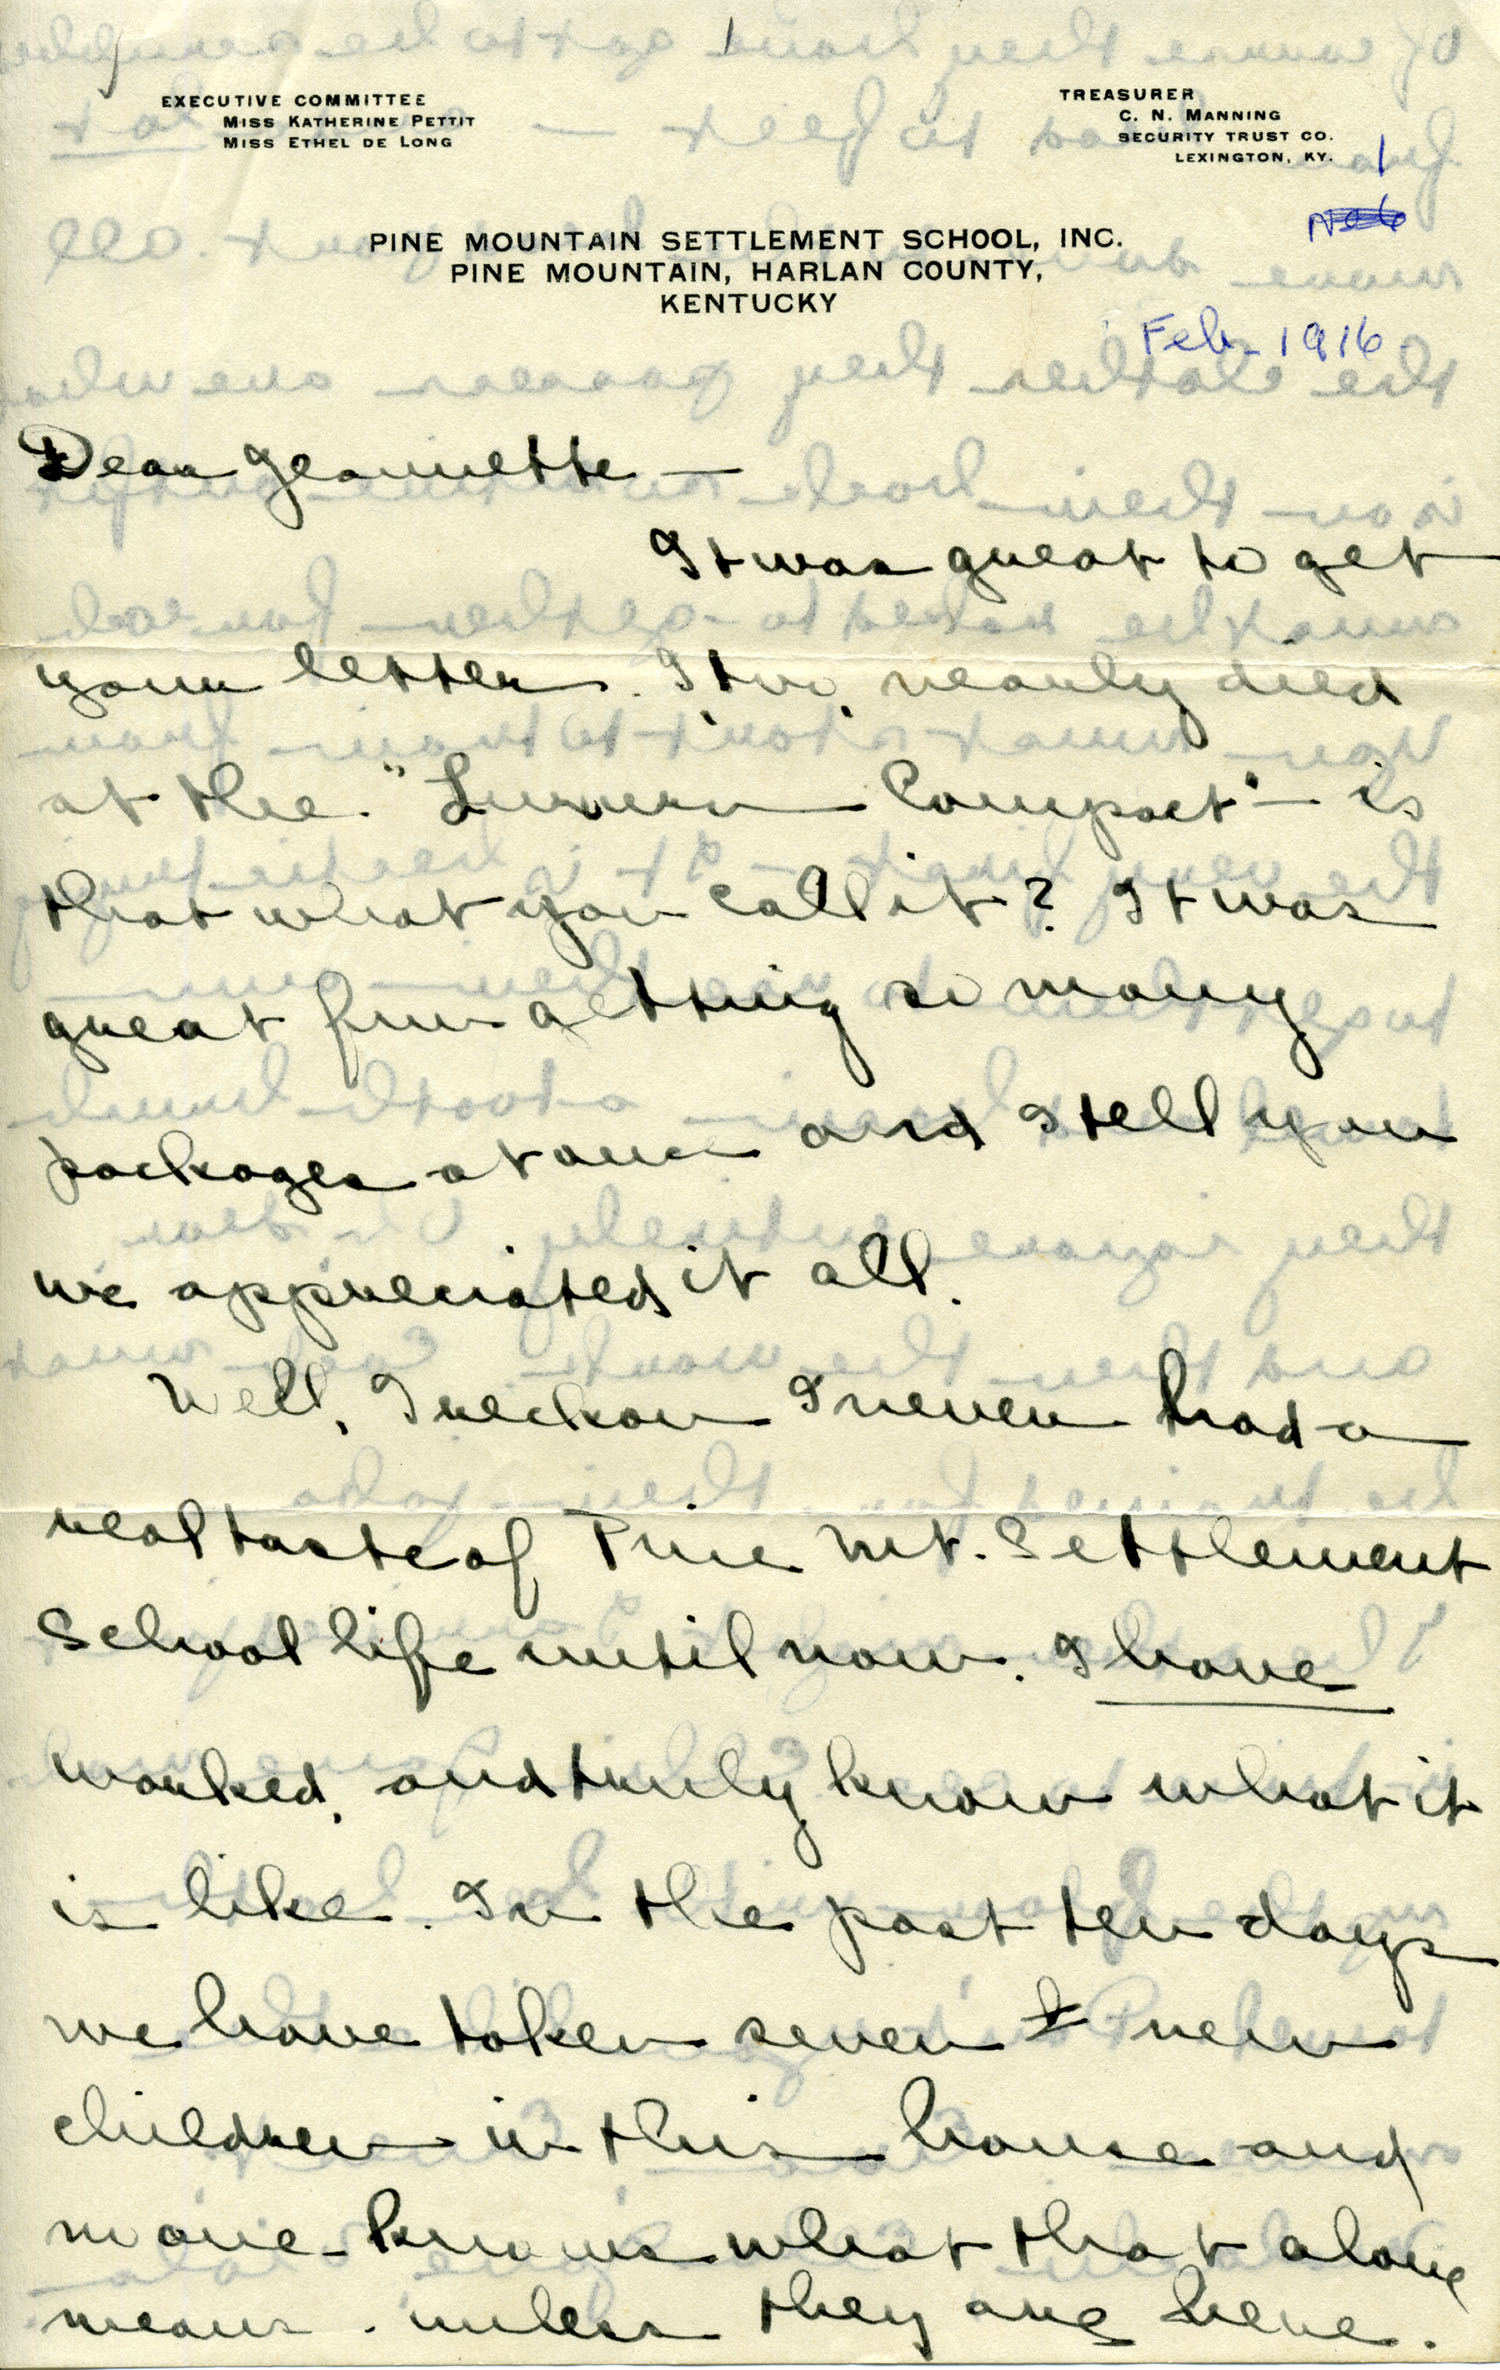 EXECUTIVE COMMITTEE
MISS KATHERINE PETTIT
MISS ETHEL DE LONG
TREASURER
C. N. MANNING
SECURITY TRUST CO.
LEXINGTON, KY.
1
PINE MOUNTAIN SETTLEMENT SCHOOL, INC.
PINE MOUNTAIN, HARLAN COUNTY,
KENTUCKY
Feb. 1916
Dear Jeannette —
It was great to get
your letter. I too, nearly died
at the " Compact" — is
that what you call it? It was
great fun getting so many
packages at once and I tell you
we appreciated it all.
Well, I reckon I never had a
real taste of Pine Mt. Settlement
School life until now. I have
worked, and truly know what it
is like. In the past ten days
we have taken seven new
children in this house and
no one knows what that alone
means. unless they are here.